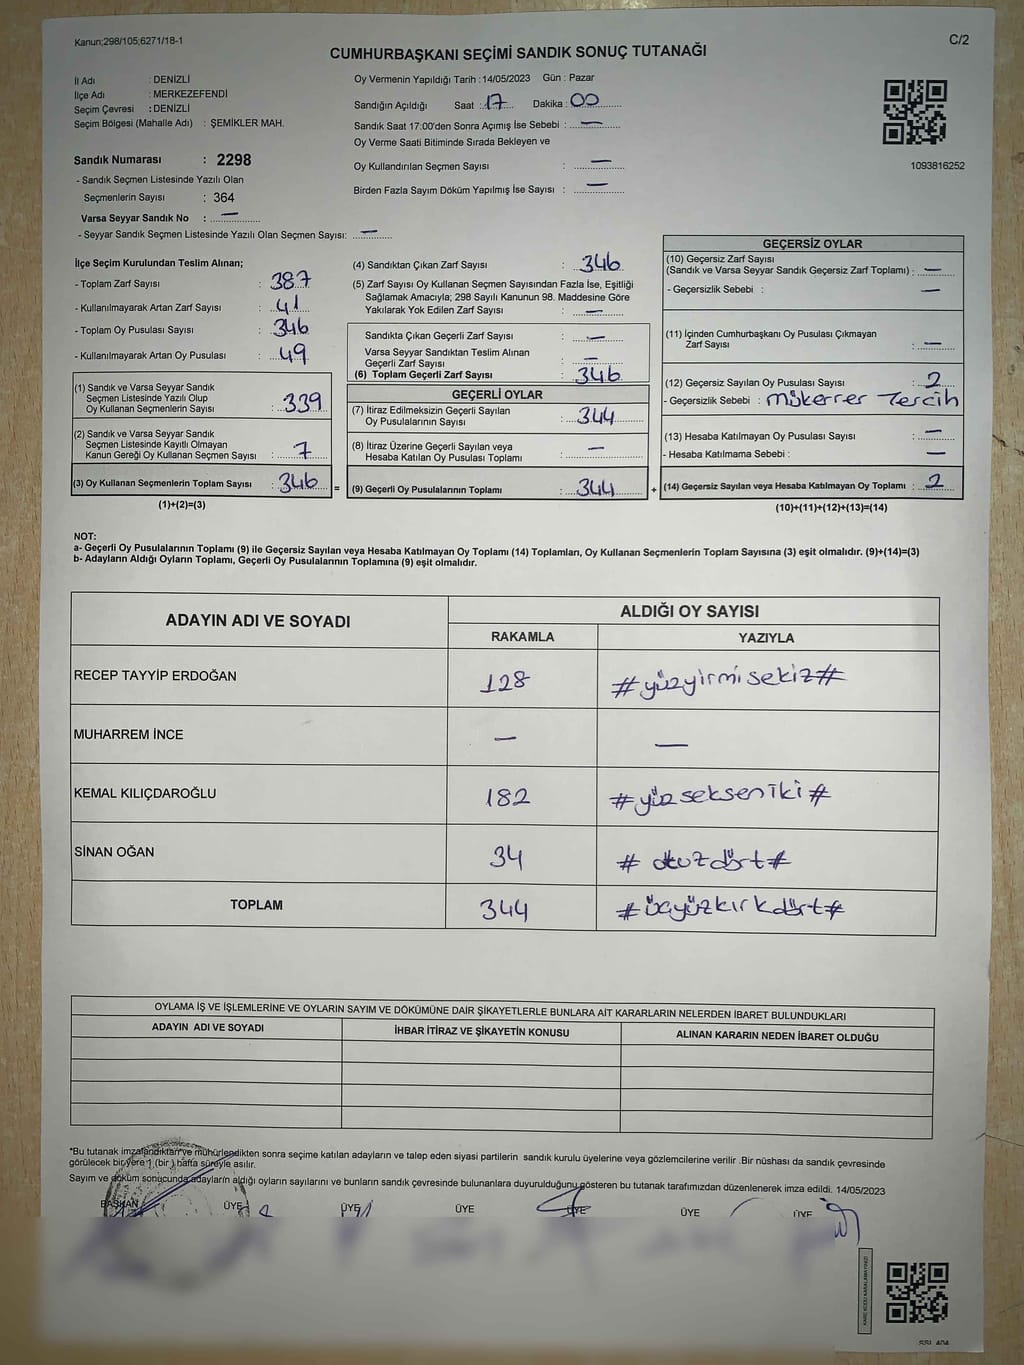 Kanun;298/105;6271/18-1
C/2
CUMHURBAŞKANI SEÇİMİ SANDIK SONUÇ TUTANAĞI
İl Adı : DENİZLİ
İlçe Adı : MERKEZEFENDİ
Seçim Çevresi : DENİZLİ
Seçim Bölgesi (Mahalle Adı) : ŞEMİKLER MAH.
Sandık Numarası : 2298
- Sandık Seçmen Listesinde Yazılı Olan
Seçmenlerin Sayısı : 364
Varsa Seyyar Sandık No : —
- Seyyar Sandık Seçmen Listesinde Yazılı Olan Seçmen Sayısı: —
Oy Vermenin Yapıldığı Tarih : 14/05/2023 Gün : Pazar
Sandığın Açıldığı Saat : 17 Dakika : 00
Sandık Saat 17:00'den Sonra Açımış İse Sebebi : —
Oy Verme Saati Bitiminde Sırada Bekleyen ve
Oy Kullandırılan Seçmen Sayısı : —
Birden Fazla Sayım Döküm Yapılmış İse Sayısı : —
1093816252
İlçe Seçim Kurulundan Teslim Alınan;
- Toplam Zarf Sayısı : 387
- Kullanılmayarak Artan Zarf Sayısı : 41
- Toplam Oy Pusulası Sayısı : 346
- Kullanılmayarak Artan Oy Pusulası : 49
(1) Sandık ve Varsa Seyyar Sandık
Seçmen Listesinde Yazılı Olup
Oy Kullanan Seçmenlerin Sayısı : 339
(2) Sandık ve Varsa Seyyar Sandık
Seçmen Listesinde Kayıtlı Olmayan
Kanun Gereği Oy Kullanan Seçmen Sayısı : 7
(3) Oy Kullanan Seçmenlerin Toplam Sayısı : 346 =
(1)+(2)=(3)
(4) Sandıktan Çıkan Zarf Sayısı : 346
(5) Zarf Sayısı Oy Kullanan Seçmen Sayısından Fazla İse, Eşitliği
Sağlamak Amacıyla; 298 Sayılı Kanunun 98. Maddesine Göre
Yakılarak Yok Edilen Zarf Sayısı : —
Sandıkta Çıkan Geçerli Zarf Sayısı : —
Varsa Seyyar Sandıktan Teslim Alınan
Geçerli Zarf Sayısı : —
(6) Toplam Geçerli Zarf Sayısı : 346
GEÇERLİ OYLAR
(7) İtiraz Edilmeksizin Geçerli Sayılan
Oy Pusulalarının Sayısı : 344
(8) İtiraz Üzerine Geçerli Sayılan veya
Hesaba Katılan Oy Pusulası Toplamı : —
(9) Geçerli Oy Pusulalarının Toplamı : 344 +
GEÇERSİZ OYLAR
(10) Geçersiz Zarf Sayısı
(Sandık ve Varsa Seyyar Sandık Geçersiz Zarf Toplamı) : —
- Geçersizlik Sebebi : —
(11) İçinden Cumhurbaşkanı Oy Pusulası Çıkmayan
Zarf Sayısı : —
(12) Geçersiz Sayılan Oy Pusulası Sayısı : 2
- Geçersizlik Sebebi : Mükerrer Tercih
(13) Hesaba Katılmayan Oy Pusulası Sayısı : —
- Hesaba Katılmama Sebebi : —
(14) Geçersiz Sayılan veya Hesaba Katılmayan Oy Toplamı : 2
(10)+(11)+(12)+(13)=(14)
NOT:
a- Geçerli Oy Pusulalarının Toplamı (9) ile Geçersiz Sayılan veya Hesaba Katılmayan Oy Toplamı (14) Toplamları, Oy Kullanan Seçmenlerin Toplam Sayısına (3) eşit olmalıdır. (9)+(14)=(3)
b- Adayların Aldığı Oyların Toplamı, Geçerli Oy Pusulalarının Toplamına (9) eşit olmalıdır.
ADAYIN ADI VE SOYADI
ALDIĞI OY SAYISI
RAKAMLA YAZIYLA
RECEP TAYYİP ERDOĞAN 128 #yüzyirmisekiz#
MUHARREM İNCE — —
KEMAL KILIÇDAROĞLU 182 #yüzsekseniki#
SİNAN OĞAN 34 #otuzdört#
TOPLAM 344 #üçyüzkırkdört#
OYLAMA İŞ VE İŞLEMLERİNE VE OYLARIN SAYIM VE DÖKÜMÜNE DAİR ŞİKAYETLERLE BUNLARA AİT KARARLARIN NELERDEN İBARET BULUNDUKLARI
ADAYIN ADI VE SOYADI İHBAR İTİRAZ VE ŞİKAYETİN KONUSU ALINAN KARARIN NEDEN İBARET OLDUĞU
*Bu tutanak imzalandıktan ve mühürlendikten sonra seçime katılan adayların ve talep eden siyasi partilerin sandık kurulu üyelerine veya gözlemcilerine verilir .Bir nüshası da sandık çevresinde
görülecek bir yere 1 (bir ) hafta süreyle asılır.
Sayım ve döküm sonucunda adayların aldığı oyların sayılarını ve bunların sandık çevresinde bulunanlara duyurulduğunu gösteren bu tutanak tarafımızdan düzenlenerek imza edildi. 14/05/2023
BAŞKAN ÜYE ÜYE ÜYE ÜYE ÜYE ÜYE